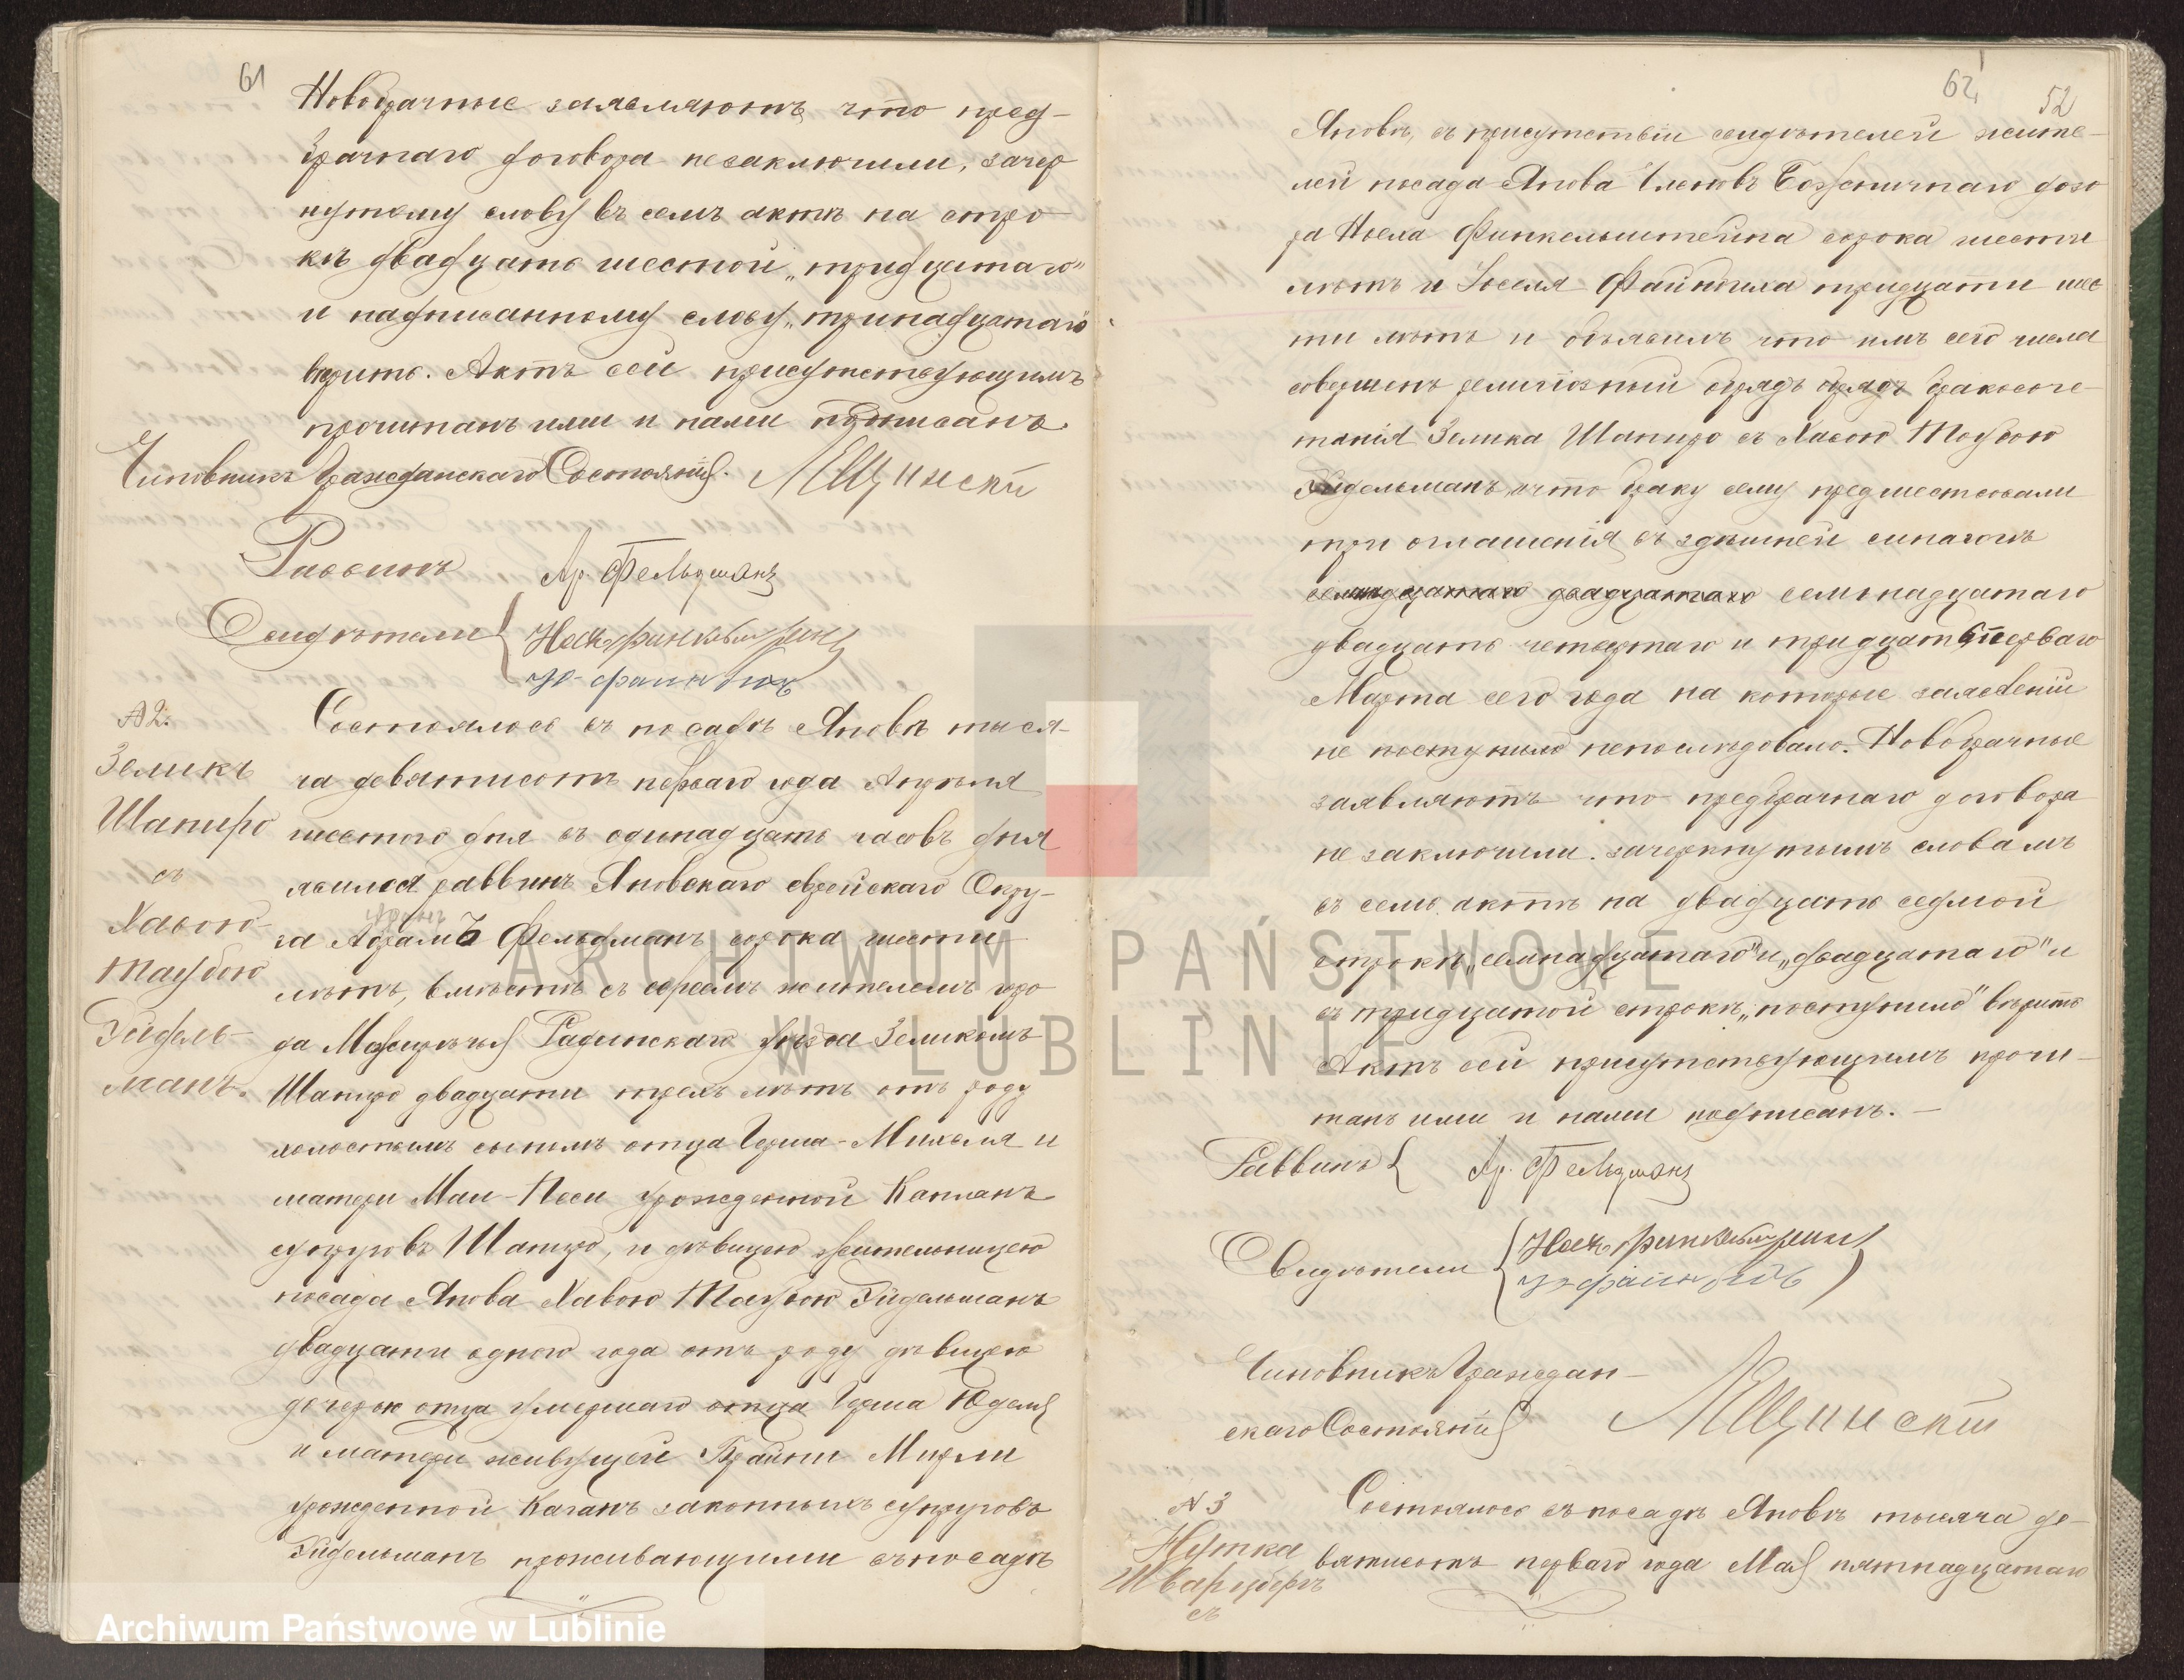 61
Новобрачные заявляютъ что пред-
брачнаго договора незаключили, зачер
нутому слову въ семъ актѣ на стро
кѣ двадцать шестой „тридцатаго"
и надписанному слову „тринадцатаго
вѣрить. Актъ сей присутствующимъ
прочитанъ ими и нами подписанъ.
Чиновникъ Гражданскаго Состоянія.
Раввинъ Ар. Фельдманъ
Свидѣтели {
А 2.
Зеликъ
Шапиро
съ
Хавою
Таубою
Гидель-
манъ.
Состоялось въ посадѣ Яновѣ тыся-
ча девятисотъ перваго года Апрѣля
шестого дня въ одинадцать часовъ дня
явился раввинъ Яновскаго еврейскаго Окру-
га Фельдманъ сорока шести
лѣтъ, вмѣстѣ съ евреемъ жителемъ горо
да Радинскаго уѣзда Зеликомъ
Шапиро двадцати трехъ лѣтъ отъ роду
холостымъ сыномъ отца Герша-Михеля и
матери Маи-Песи урожденной Капланъ
супруговъ Шапиро, и дѣвицею жительницею
посада Янова Хавою Таубою Гидельманъ
двадцати одного года отъ роду дѣвицею
дочерью отца умершаго отца Герша Юделя
и матери живущей Брайни Мирли
урожденной Каганъ законныхъ супруговъ
Гидельманъ проживающими въ посадѣ
62
52
Яновѣ, въ присутствіи свидѣтелей жите-
лей посада Янова Членовъ Божничнаго дозо
ра Финкельштейна сорока шести
лѣтъ и тридцати шес
ти лѣтъ и объявилъ что имъ сего числа
совершенъ религіозный обрядъ обрядъ бракосоче-
танія Зелика Шапиро съ Хавою Таубою
Гидельманъ, что браку сему предшествовали
три оглашенія въ здѣшней синагогѣ
двадцатаго семьнадцатаго
двадцать четвертаго и тридцать перваго
Марта сего года на которые заявленій
не поступило непослѣдовало. Новобрачные
заявляютъ что предбрачнаго договора
не заключили. зачеркнутымъ словамъ
въ семъ актѣ на двадцать седмой
строкѣ „семнадцатаго" и „двадцатаго" и
въ тридцатой строкѣ „поступило" вѣрить
Актъ сей присутствующимъ прочи-
танъ ими и нами подписанъ. —
Раввинъ { Ар. Фельдманъ
Свидѣтели {
Чиновникъ Граждан-
скаго Состоянія
N 3
Нутка
Шварцберъ
съ
Состоялось въ посадѣ Яновѣ тысяча де-
вятисотъ перваго года Мая пятнадцатаго
ARCHIWUM PAŃSTWOWE
W LUBLINIE
Archiwum Państwowe w Lublinie